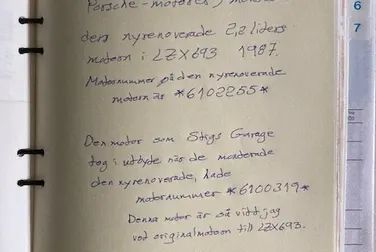 Porsche-motorer,
den nyrenoverade 2,2 liters
motorn i LZX693 1987.
Motornummer på den nyrenoverade
motorn är *6102255*
Den motor som Stigs Garage
tog i utbyte när de monterade
den nyrenoverade, hade
motornummer *6100319*
Denna motor är så vitt jag
vet originalmotorn till LZX693.
6
7